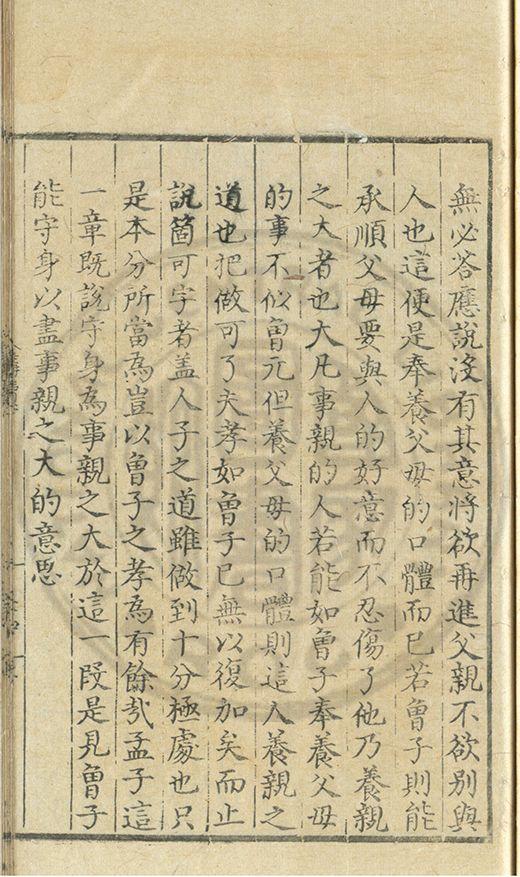 無必答應說没有其意將欲再進父親不欲别與
人也這便是奉養父母的口體而已若曾子則能
承順父母要與人的好意而不忍傷了他乃養親
之大者也大凡事親的人若能如曾子奉養父母
的事不似曾元但養父母的口體則這人養親之
道也把做可了夫孝如曾子已無以復加矣而止
說箇可字者盖人子之道雖做到十分極處也只
是本分所當為豈以曾子之孝為有餘㢤孟子這
一章既說守身為事親之大於這一段是見曾子
能守身以盡事親之大的意思